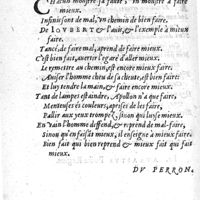 CHacun monstre sa faute, en monstre à faire
mieux.
Instruisons de mal, un chemin de bien faire.
De IOVBERT & l'avis, & l'exemple à mieux
faire.
Tancé, de faire mal, aprend de faire mieux.
C'est bien fait, avertir l'egaré d'aller mieux.
Le remettre au chemin, est encore mieux faire.
Aviser l'homme cheu de sa cheute, est bien faire:
Et luy tendre la main, & encore mieux faire.
Tant de lampes esteindre, Apollon n'a que faire.
Menteuses és couleurs, apreses de les faire,
Pallir aux yeux trompez, sinon qui luyse mieux.
En vain l'homme deffend, & reprend de mal-faire,
Sinon qu'en ce fait mieux, il enseigne à mieux faire.
Bien fait qui bien reprend & mieux fait qui fait
mieux.
DV PERRON.